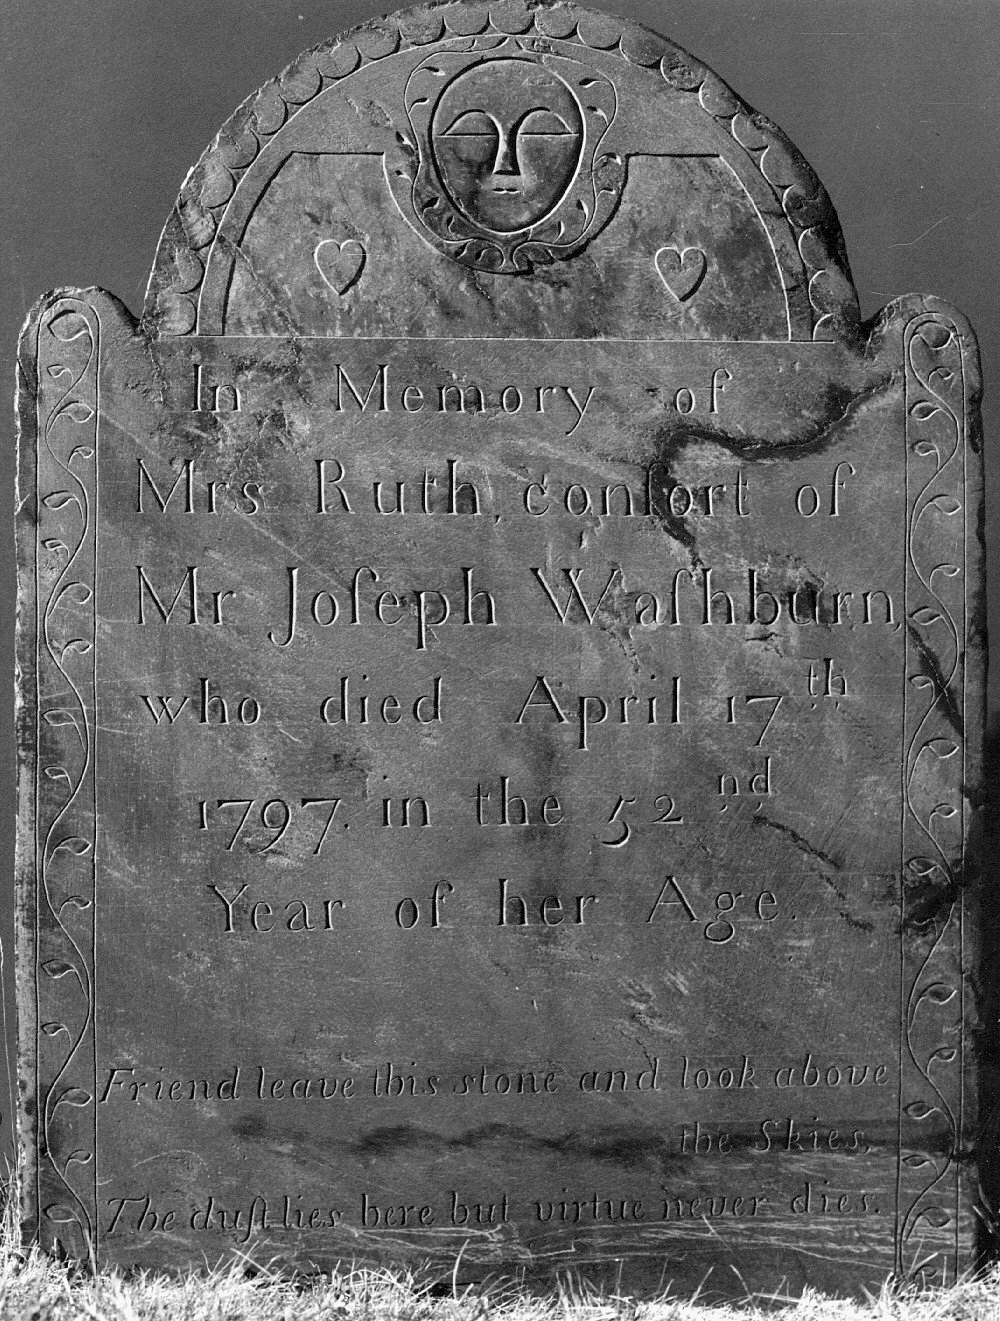 In Memory of
Mrs Ruth, conſort of
Mr Joſeph Waſhburn,
who died April 17th
1797. in the 52nd
Year of her Age.
Friend leave this stone and look above
the Skies,
The duſt lies here but virtue never dies.